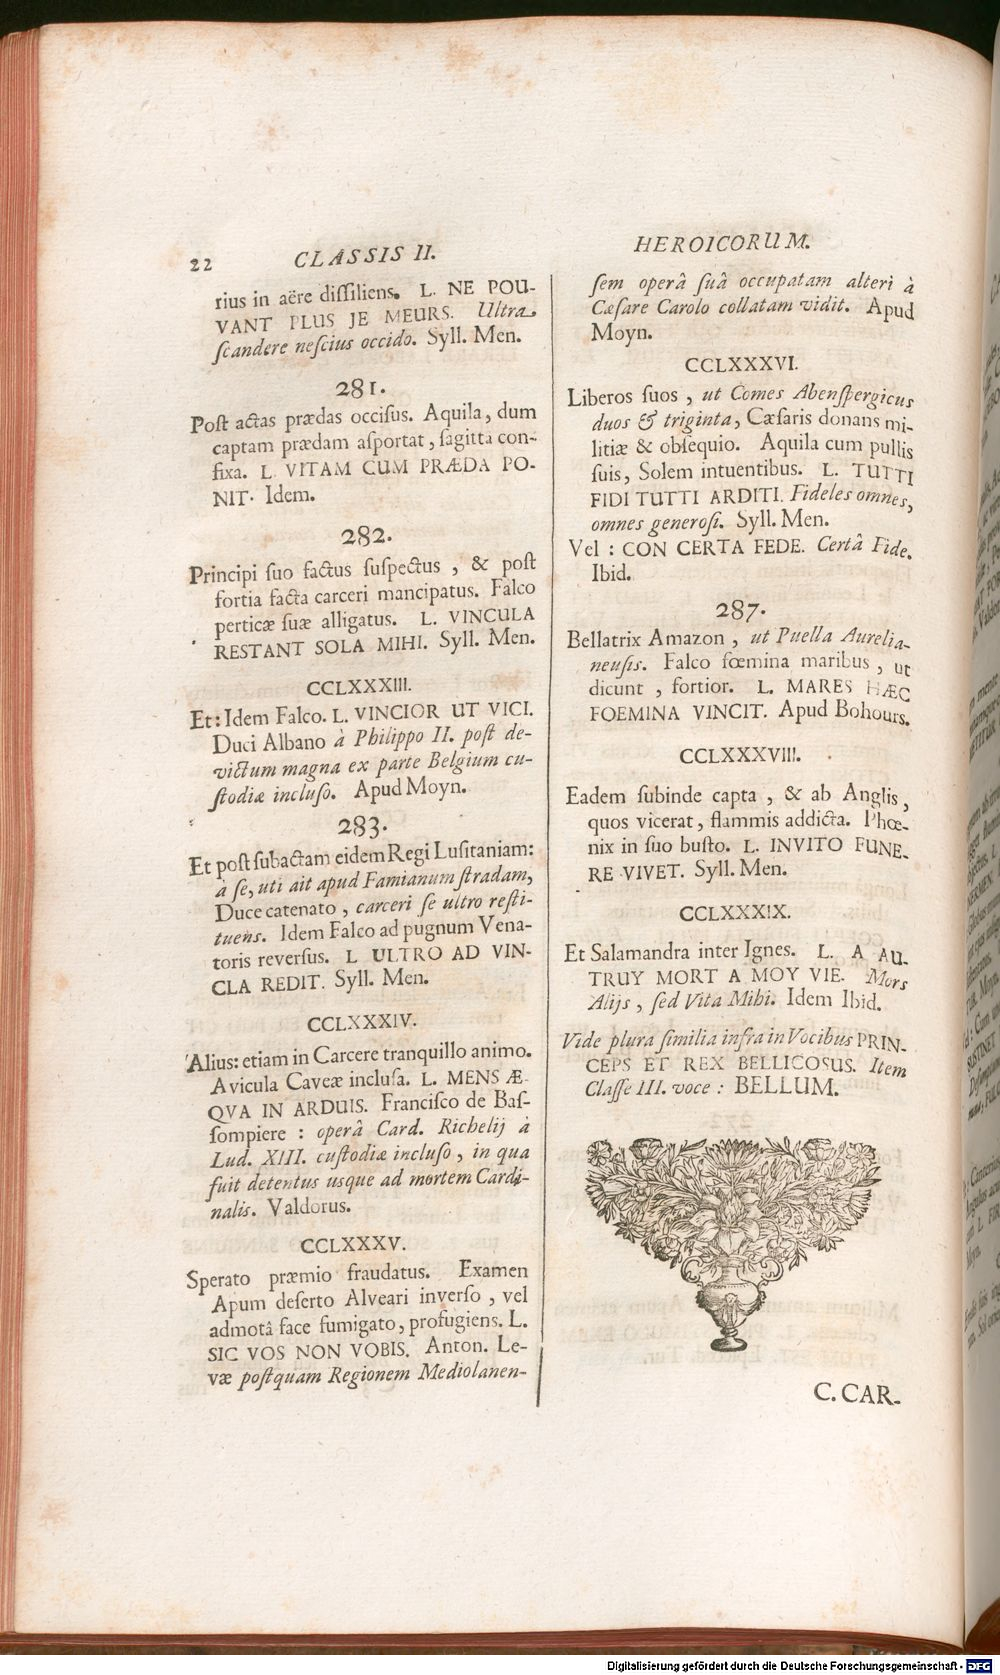 22 CLASSIS II. HEROICORUM.
rius in aëre dissiliens. L. NE POU-
VANT PLUS JE MEURS. Ultra
scandere nescius occido. Syll. Men.
281.
Post actas prædas occisus. Aquila, dum
captam prædam asportat, sagitta con-
fixa. L. VITAM CUM PRÆDA PO-
NIT. Idem.
282.
Principi suo factus suspectus, & post
fortia facta carceri mancipatus. Falco
perticæ suæ alligatus. L. VINCULA
RESTANT SOLA MIHI. Syll. Men.
CCLXXXIII.
Et: Idem Falco. L. VINCIOR UT VICI.
Duci Albano à Philippo II. post de-
victum magna ex parte Belgium cu-
stodiæ incluso. Apud Moyn.
283.
Et post subactam eidem Regi Lusitaniam:
à se, uti ait apud Famianum stradam,
Duce catenato, carceri se ultro resti-
tuens. Idem Falco ad pugnum Vena-
toris reversus. L ULTRO AD VIN-
CLA REDIT. Syll. Men.
CCLXXXIV.
Alius: etiam in Carcere tranquillo animo.
Avicula Caveæ inclusa. L. MENS Æ-
QVA IN ARDUIS. Francisco de Bas-
sompiere: operâ Card. Richelij à
Lud. XIII. custodiæ incluso, in qua
fuit detentus usque ad mortem Cardi-
nalis. Valdorus.
CCLXXXV.
Sperato præmio fraudatus. Examen
Apum deserto Alveari inverso, vel
admotâ face fumigato, profugiens. L.
SIC VOS NON VOBIS. Anton. Le-
væ postquam Regionem Mediolanen-
sem operâ suâ occupatam alteri à
Cæsare Carolo collatam vidit. Apud
Moyn.
CCLXXXVI.
Liberos suos, ut Comes Abenspergicus
duos & triginta, Cæsaris donans mi-
litiæ & obsequio. Aquila cum pullis
suis, Solem intuentibus. L. TUTTI
FIDI TUTTI ARDITI. Fideles omnes,
omnes generosi. Syll. Men.
Vel: CON CERTA FEDE. Certâ Fide.
Ibid.
287.
Bellatrix Amazon, ut Puella Aurelia-
nensis. Falco fœmina maribus, ut
dicunt, fortior. L. MARES HÆC
FOEMINA VINCIT. Apud Bohours.
CCLXXXVIII.
Eadem subinde capta, & ab Anglis,
quos vicerat, flammis addicta. Phœ-
nix in suo busto. L. INVITO FUNE-
RE VIVET. Syll. Men.
CCLXXXIX.
Et Salamandra inter Ignes. L. A AU-
TRUY MORT A MOY VIE. Mors
Alijs, sed Vita Mihi. Idem Ibid.
Vide plura similia infra in Vocibus PRIN-
CEPS ET REX BELLICOSUS. Item
Classe III. voce: BELLUM.
C. CAR-
Digitalisierung gefördert durch die Deutsche Forschungsgemeinschaft - DFG